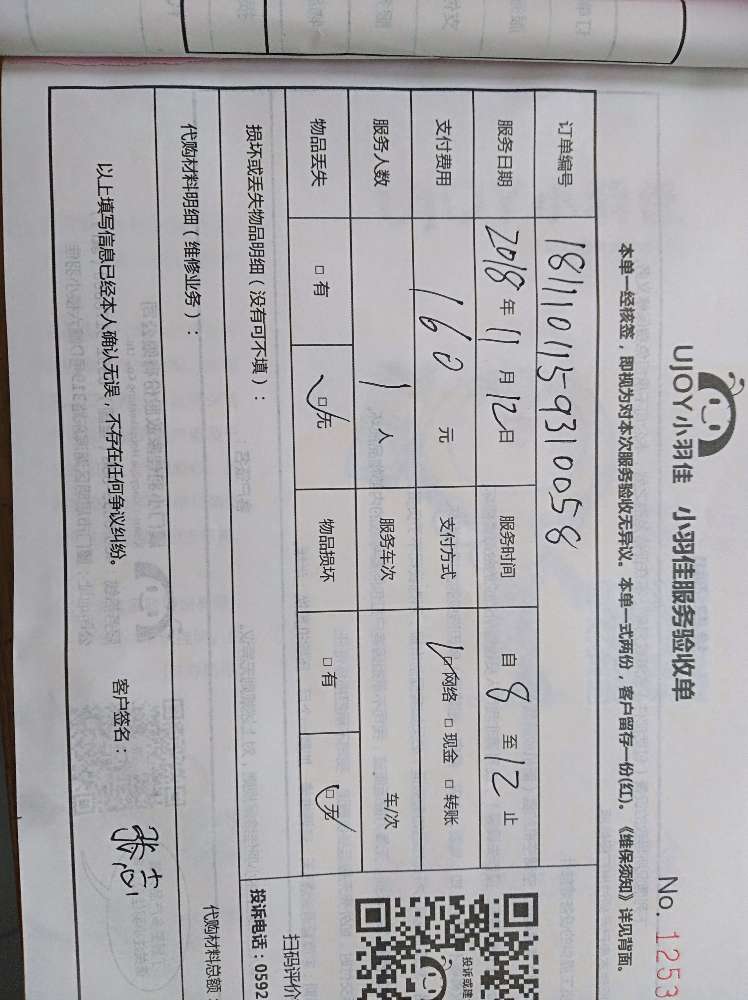 UJOY小羽佳 小羽佳服务验收单
No. 1253
本单一经核签，即视为对本次服务验收无异议。本单一式两份，客户留存一份(红)。《维保须知》详见背面。
订单编号 181110115-9310058
服务日期 2018 年 11 月 12 日 服务时间 自 8 至 12 止
支付费用 160 元 支付方式 □ 网络 □ 现金 □ 转账
服务人数 1 人 服务车次 车/次
物品丢失 □ 有 □ 无 物品损坏 □ 有 □ 无
损坏或丢失物品明细（没有可不填）：
代购材料明细（维修业务）： 代购材料总额：
以上填写信息已经本人确认无误，不存在任何争议纠纷。 客户签名：
投诉或建
扫码评价
投诉电话：0592